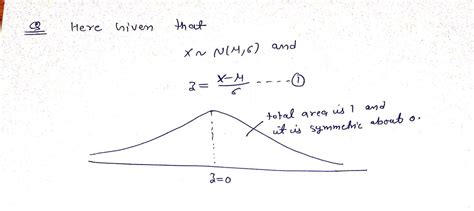 Here Given that
X ~ N(μ,σ) and
z = X-μ/σ ----- ①
total area is 1 and
it is symmetric about 0.
z=0